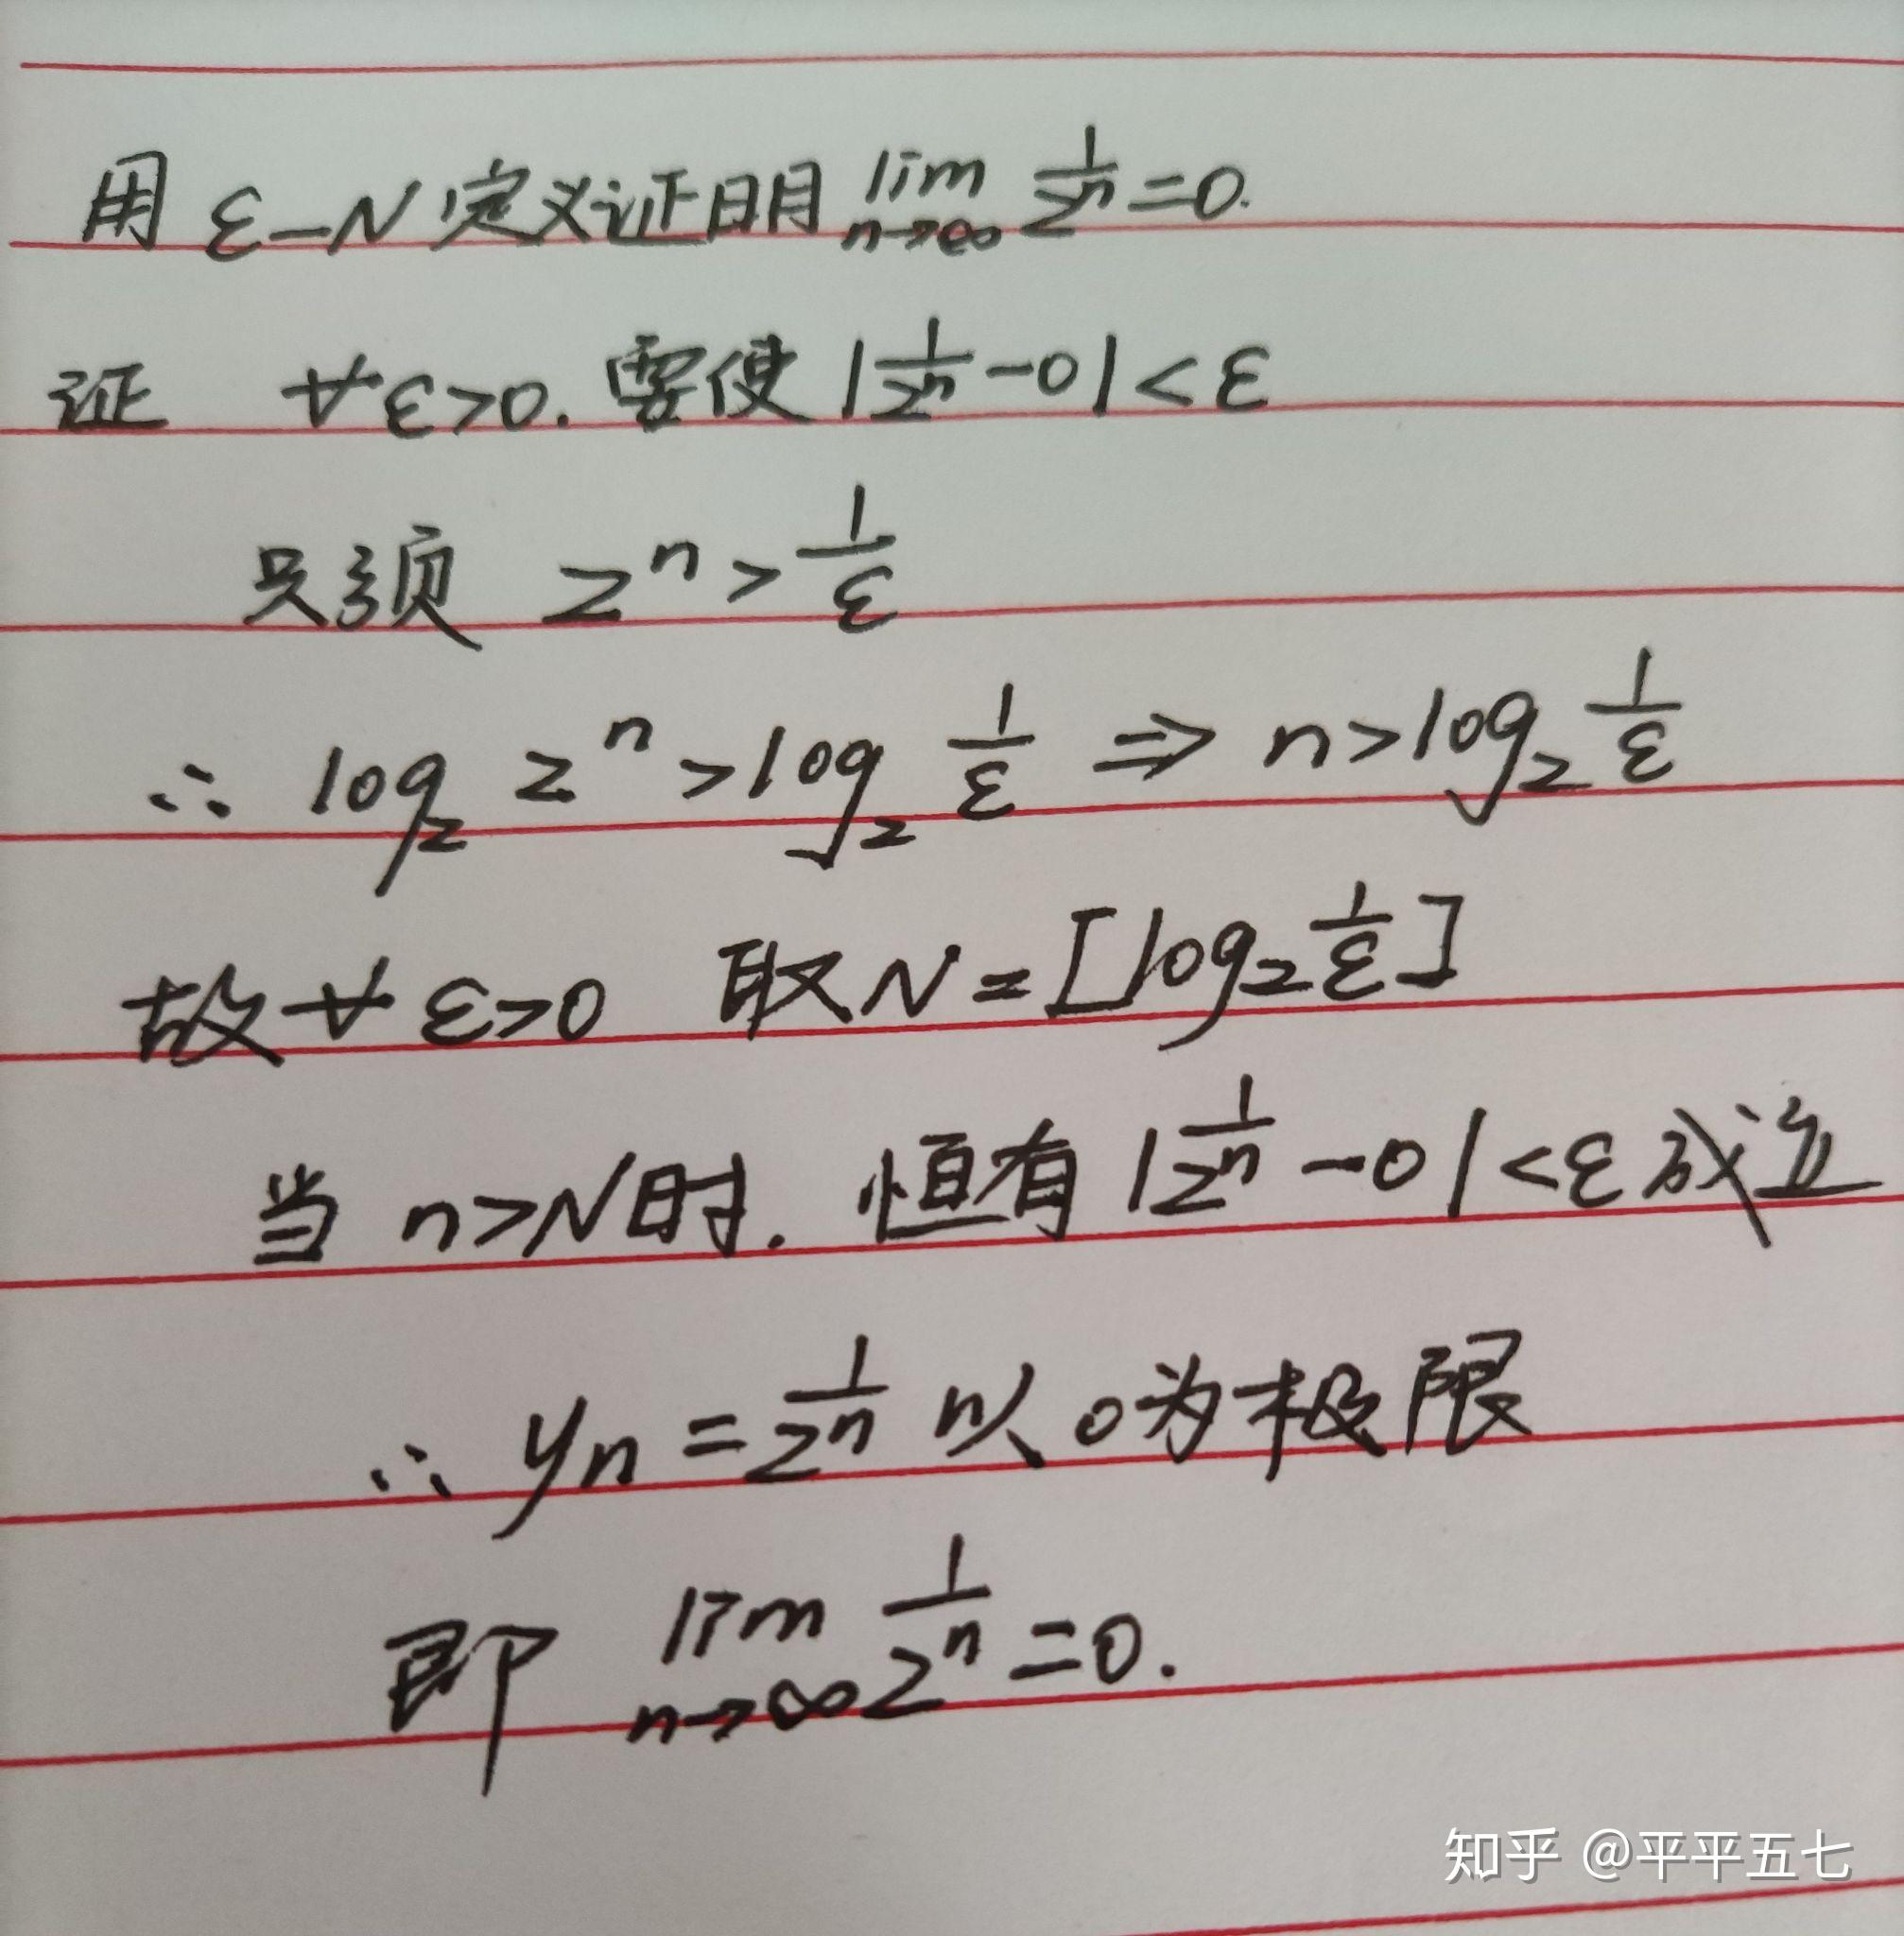 用 ε-N 定义证明 lim_{n→∞} 1/2^n = 0.
证 ∀ε>0. 要使 |1/2^n - 0| < ε
只须 2^n > 1/ε
∴ log_2 2^n > log_2 1/ε ⇒ n > log_2 1/ε
故 ∀ ε>0 取 N = [log_2 1/ε]
当 n>N 时. 恒有 |1/2^n - 0| < ε 成立
∴ y_n = 1/2^n 以 0 为极限
即 lim_{n→∞} 1/2^n = 0.
知乎 @平平五七